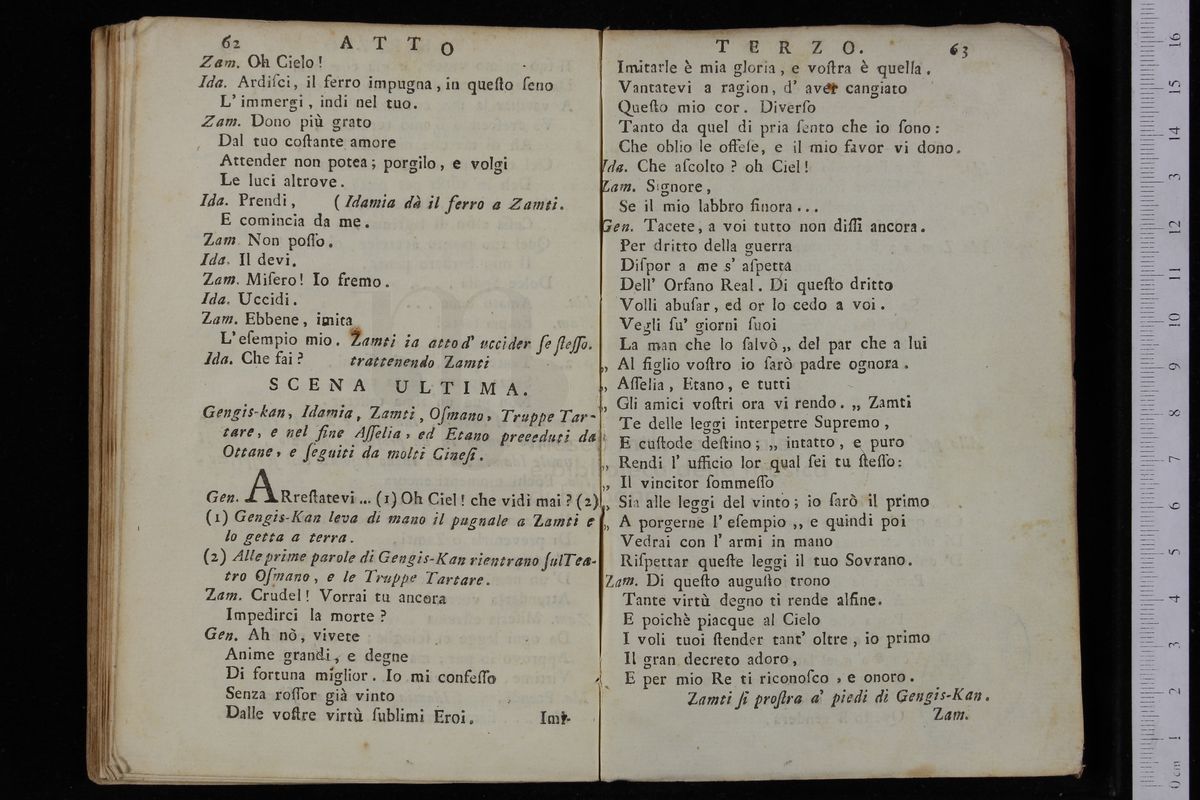 62 ATTO
Zam. Oh Cielo!
Ida. Ardiſci, il ferro impugna, in queſto ſeno
L' immergi, indi nel tuo.
Zam. Dono più grato
Dal tuo coſtante amore
Attender non potea; porgilo, e volgi
Le luci altrove.
Ida. Prendi, ( Idamia dà il ferro a Zamti.
E comincia da me.
Zam. Non poſſo.
Ida. Il devi.
Zam. Miſero! Io fremo.
Ida. Uccidi.
Zam. Ebbene, imita
L' eſempio mio. Zamti in atto d' uccider ſe ſteſſo.
Ida. Che fai? trattenendo Zamti
SCENA ULTIMA.
Gengis-kan, Idamia, Zamti, Oſmano, Truppe Tar-
tare, e nel fine Aſſelia, ed Etano preceduti da
Ottane, e ſeguiti da molti Cineſi.
Gen. ARreſtatevi... (1) Oh Ciel! che vidi mai? (2)
(1) Gengis-Kan leva di mano il pugnale a Zamti e
lo getta a terra.
(2) Alle prime parole di Gengis-Kan rientrano ſul Tea-
tro Oſmano, e le Truppe Tartare.
Zam. Crudel! Vorrai tu ancora
Impedirci la morte?
Gen. Ah nò, vivete
Anime grandi, e degne
Di fortuna miglior. Io mi confeſſo
Senza roſſor già vinto
Dalle voſtre virtù ſublimi Eroi.
Imi-
TERZO. 63
Imitarle è mia gloria, e voſtra è quella.
Vantatevi a ragion, d' aver cangiato
Queſto mio cor. Diverſo
Tanto da quel di pria ſento che io ſono:
Che oblio le offeſe, e il mio favor vi dono.
Ida. Che aſcolto? oh Ciel!
Zam. Signore,
Se il mio labbro finora...
Gen. Tacete, a voi tutto non diſſi ancora.
Per dritto della guerra
Diſpor a me s' aſpetta
Dell' Orfano Real. Di queſto dritto
Volli abuſar, ed or lo cedo a voi.
Vegli ſu' giorni ſuoi
La man che lo ſalvò „ del par che a lui
„ Al figlio voſtro io ſarò padre ognora.
„ Aſſelia, Etano, e tutti
„ Gli amici voſtri ora vi rendo. „ Zamti
Te delle leggi interpetre Supremo,
E cuſtode deſtino; „ intatto, e puro
„ Rendi l' ufficio lor qual ſei tu ſteſſo:
„ Il vincitor ſommeſſo
„ Sia alle leggi del vinto; io ſarò il primo
„ A porgerne l' eſempio „ e quindi poi
Vedrai con l' armi in mano
Riſpettar queſte leggi il tuo Sovrano.
Zam. Di queſto auguſto trono
Tante virtù degno ti rende alfine.
E poichè piacque al Cielo
I voli tuoi ſtender tant' oltre, io primo
Il gran decreto adoro,
E per mio Re ti riconoſco, e onoro.
Zamti ſi proſtra a' piedi di Gengis-Kan.
Zam.
0 cm 1 2 3 4 5 6 7 8 9 10 11 12 13 14 15 16